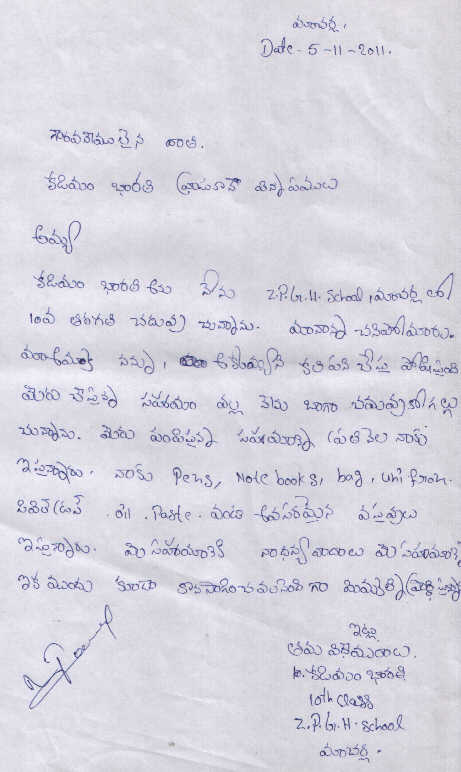 మాచర్ల,
Date - 5-11-2011.
గౌరవనీయులైన
కేడియం భారతి వ్రాయునది విన్నపములు
అమ్మా
కేడియం భారతి అను నేను Z.P.G.H. School, మాచర్ల లో
10వ తరగతి చదువు చున్నాను. మానాన్న చనిపోయినారు.
మా అమ్మ నన్ను, కూలి పని చేసి పోషిస్తుంది
మీరు చేస్తున్న సహాయం వల్ల నేను బాగా చదువుకోగల్గు
చున్నాను. మీరు పంపిస్తున్న సహాయాన్ని ప్రతి నెల నాకు
ఇస్తున్నారు. నాకు Pens, Note books, bag, unifrom.
oil. Paste. వంటి అవసరమైన వస్తువులు
ఇస్తున్నారు. మీ సహాయానికి నా ధన్యవాదాలు మీ సహాయాన్ని
ఇక ముందు కూడా కొనసాగించవలసింది గా మిమ్మల్ని ప్రార్థిస్తున్నా
ఇట్లు
తమ విధేయురాలు.
k. కేడియం భారతి
10th class
Z.P.G.H. School
మాచర్ల.